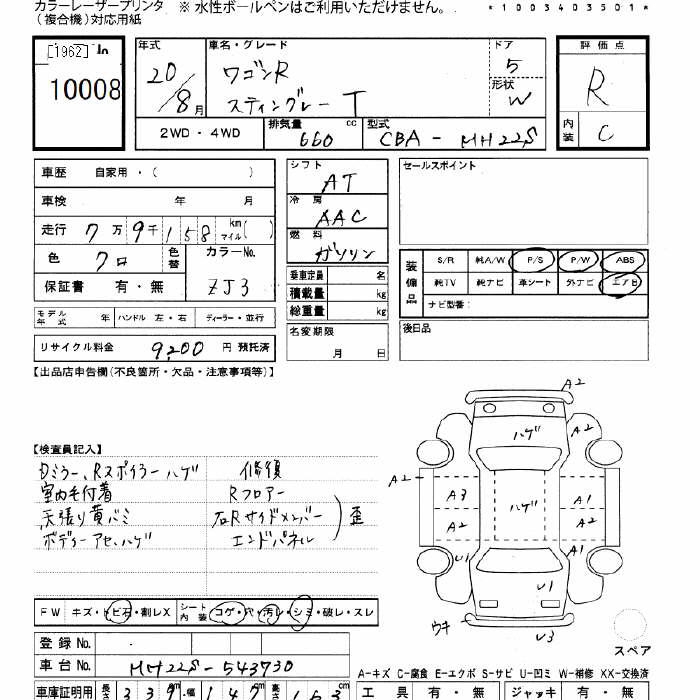 カラーレーザープリンタ ※ 水性ボールペンはご利用いただけません。 *1003403501*
(複合機)対応用紙
1962
10008
年式 車名・グレード ドア 評価点
20/8月 ワゴンR 5 R
スティングレー T 形状 W
2WD・4WD 排気量 660 cc 型式 CBA-MH22S 内装 C
車歴 自家用・( ) シフト AT セールスポイント
車検 年 月 冷房 AAC
走行 7万9千158 km マイル ( ) 燃料 ガソリン
色 クロ 色替 カラーNo. ZJ3
保証書 有・無
乗車定員 名
積載量 kg
総重量 kg
装備品 S/R 純A/W P/S P/W ABS
純TV 純ナビ 革シート 外ナビ エアB
ナビ型番:
モデル年式 年 ハンドル 左・右 ディーラー・並行
名変期限 月 日
後日品
リサイクル料金 9,200 円 預託済
【出品店申告欄(不良箇所・欠品・注意事項等)】
【検査員記入】
Dミラー、Rスポイラーハゲ 修復
室内毛付着 Rフロアー
天張り黄バミ 右Rサイドメンバー 歪
ボディーアセ、ハゲ エンドパネル
A2
ハゲ A2
A2
A3 ハゲ A1
A2 A2
U1 A1
U1
ウキ U3
スペア
FW キズ・トビ石・割レX シート内装 コゲ・穴・汚レ・シミ・破レ・スレ
登録No.
車台No. MH22S-543730
A-キズ C-腐食 E-エクボ S-サビ U-凹ミ W-補修 XX-交換済
車庫証明用 長さ 339 cm 幅 147 cm 高さ 163 cm
工具 有・無 ジャッキ 有・無